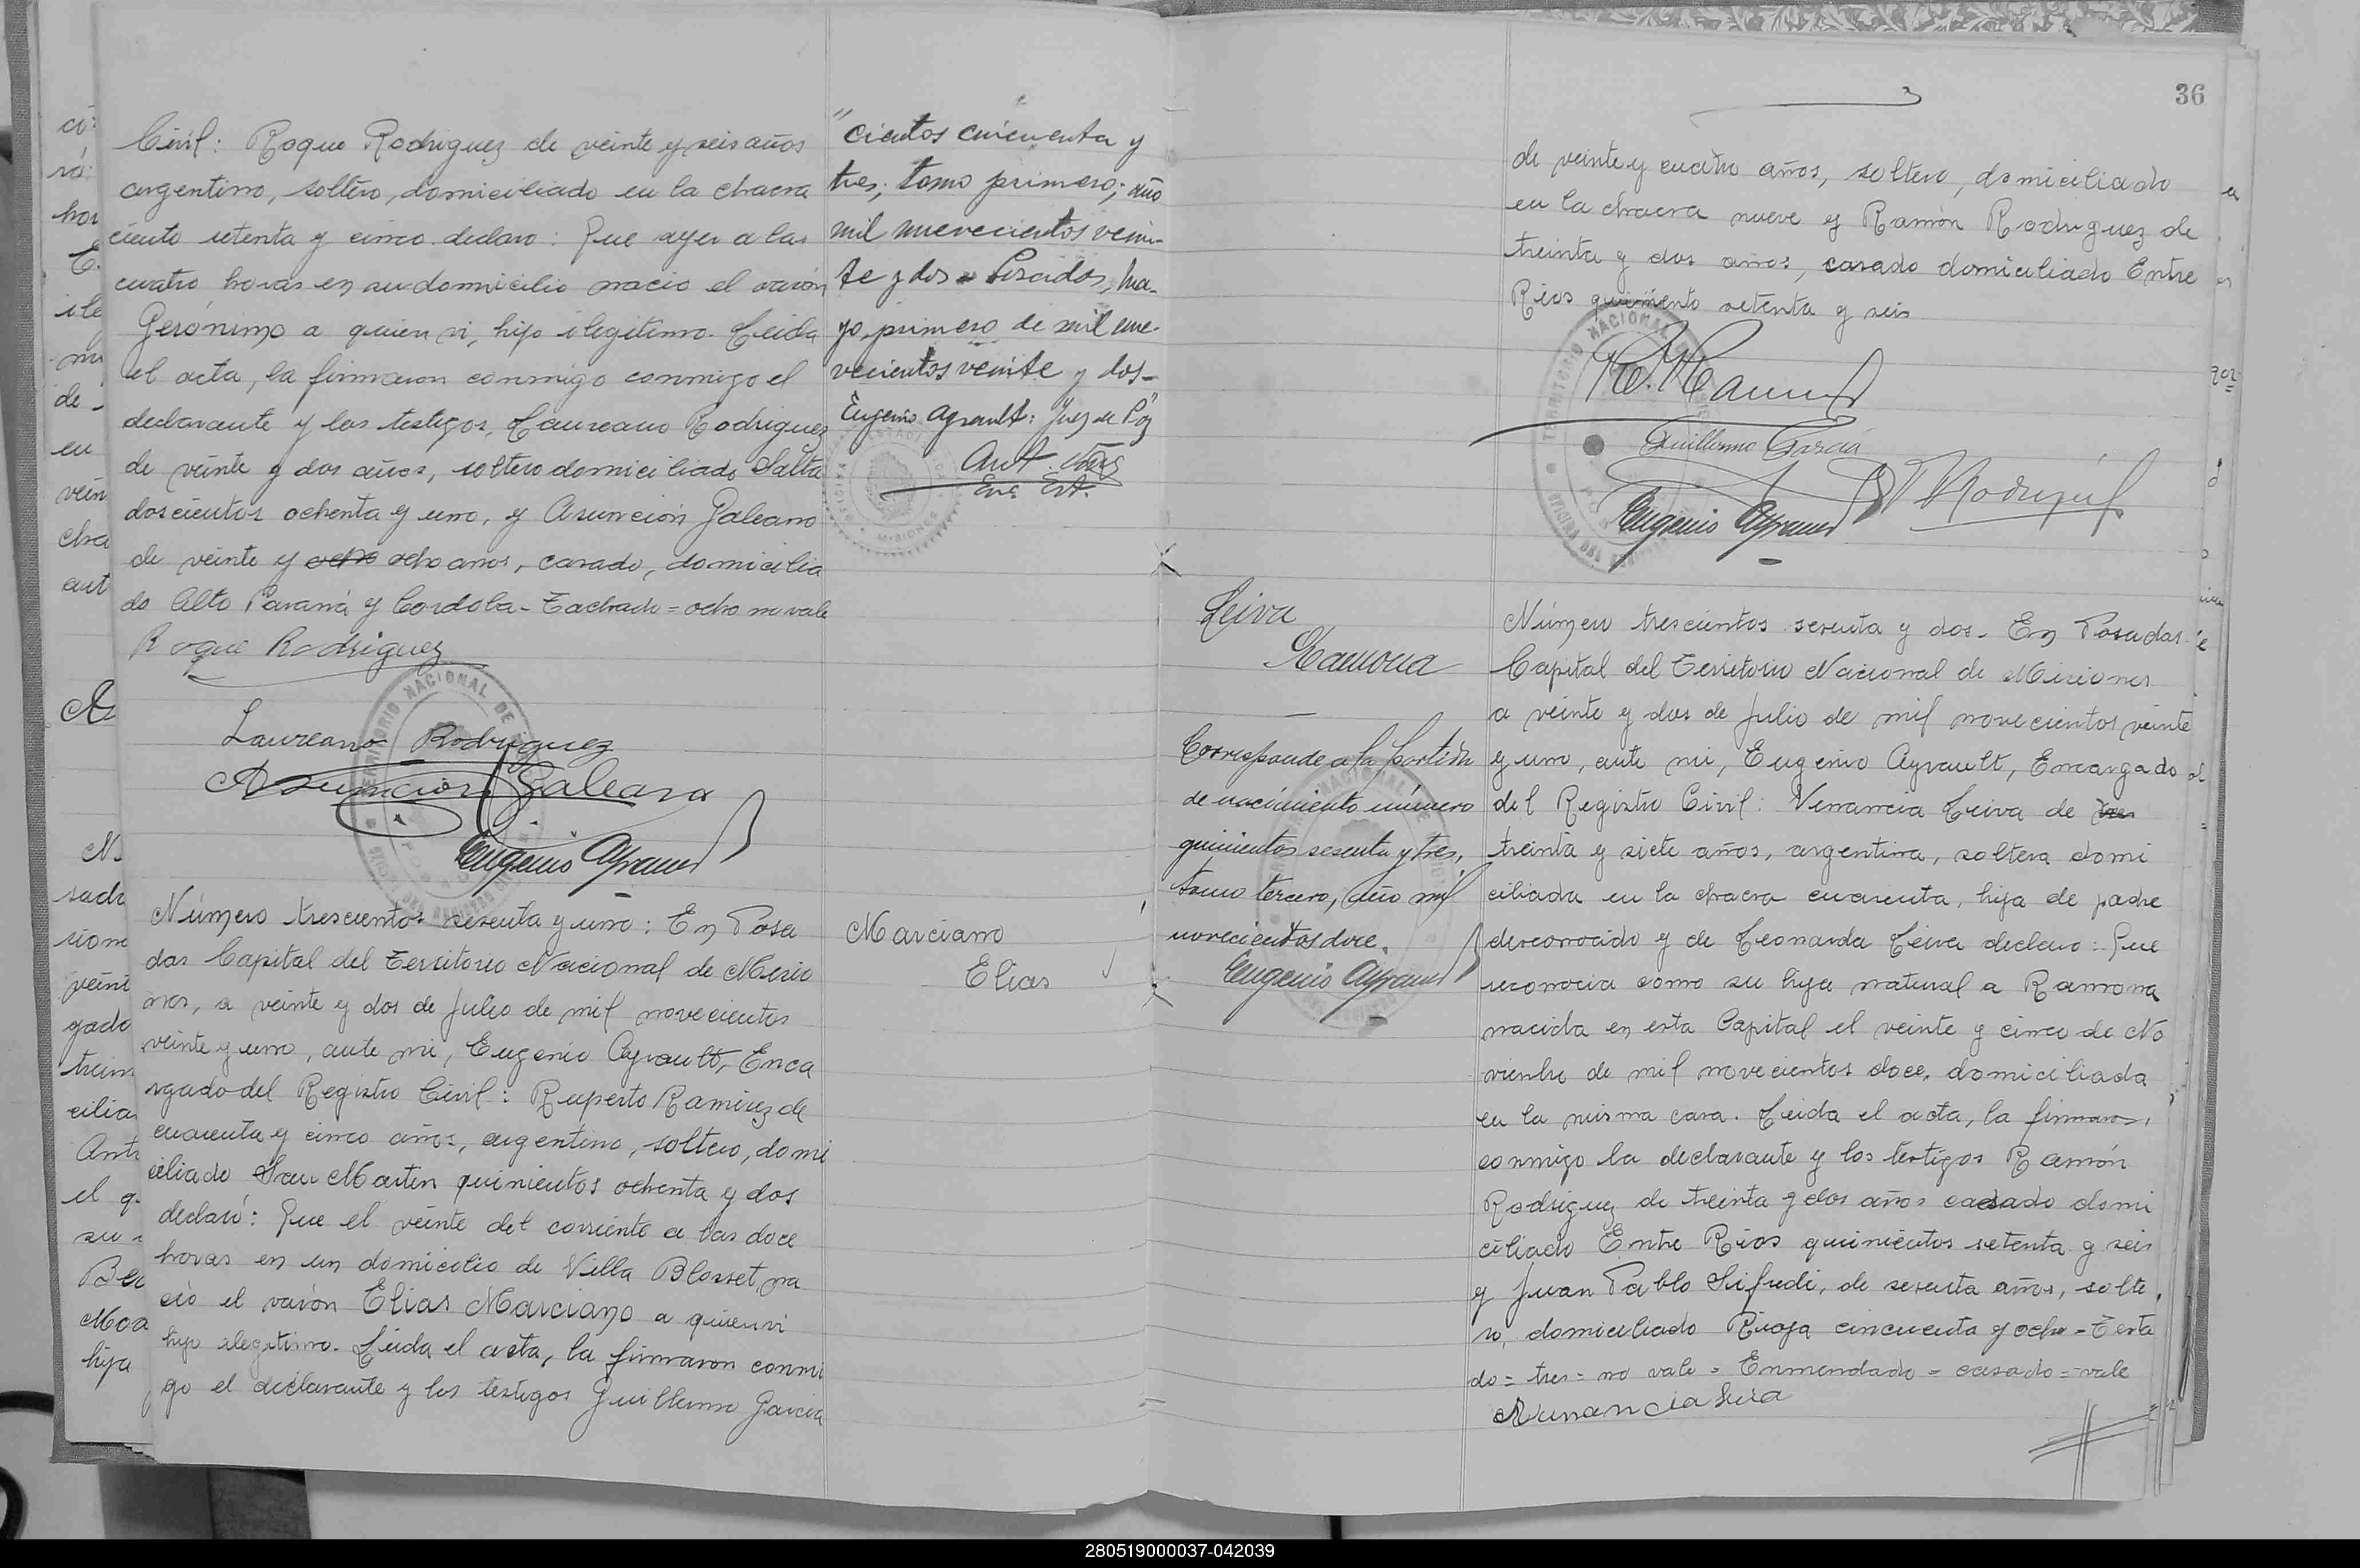 Civil: Roque Rodriguez de veinte y seis años
argentino, soltero, domiciliado en la chacra
ciento setenta y cinco declaro: Que ayer a las
cuatro horas en su domicilio nacio el varón
Gerónimo a quien vi, hijo ilegitimo. Leida
el acta, la firmaron conmigo conmigo el
declarante y los testigos, Laureano Rodriguez
de veinte y dos años, soltero domiciliado Salta
doscientos ochenta y uno, y Asunción Galeano
de veinte y ocho ocho años, casado, domicilia
do Alto Paraná y Cordoba - Tachado = ocho no vale
Roque Rodriguez
Laureano Rodriguez
Asuncion Galeano
Eugenio Ayrault
"cientos cincuenta y
tres; tomo primero; año
mil novecientos vein-
te y dos = Posadas, ma-
yo, primero de mil nue-
vecientos veinte y dos -
Eugenio Ayrault: Juez de Paz
Número trescientos sesenta y uno: En Posa
das Capital del Territorio Nacional de Misio
nes, a veinte y dos de Julio de mil novecientos
veinte y uno, ante mi, Eugenio Ayrault, Enca
rgado del Registro Civil: Ruperto Ramirez de
cuarenta y cinco años, argentino, soltero, domi
ciliado San Martin quinientos ochenta y dos
declaró: Que el veinte del corriente a las doce
horas en un domicilio de Villa Blosset, na
ció el varón Elias Marciano a quien vi
hijo ilegitimo. Leida el acta, la firmaron conmi
go el declarante y los testigos Guillermo Garcia
Marciano
Elias
36
de veinte y cuatro años, soltero, domiciliado
en la chacra nueve y Ramón Rodriguez de
treinta y dos años, casado domiciliado Entre
Rios quiniento setenta y seis
Guillermo Garcia
R Rodriguez
Eugenio Ayrault
Leiva
Ramona
Corresponde a la partida
de nacimiento número
quinientos sesenta y tres,
tomo tercero, año mil
novecientos doce.
Eugenio Ayrault
Número trescientos sesenta y dos. En Posadas
Capital del Territorio Nacional de Misiones
a veinte y dos de Julio de mil novecientos veinte
y uno, ante mi, Eugenio Ayrault, Encargado
del Registro Civil: Venancia Leiva de tres
treinta y siete años, argentina, soltera domi
ciliada en la chacra cuarenta, hija de padre
desconocido y de Leonarda Leiva declaro: Que
reconocia como su hija natural a Ramona
nacida en esta Capital el veinte y cinco de No
viembre de mil novecientos doce, domiciliada
en la misma casa. Leida el acta, la firmaron
conmigo la declarante y los testigos Ramón
Rodriguez de treinta y dos años casado domi
ciliado Entre Rios quinientos setenta y seis
y Juan Pablo Sifredi, de sesenta años, solte
ro, domiciliado Rioja cincuenta y ocho - Testa
do = tres = no vale = Enmendado = casado = vale
Venancia Leiva
280519000037-042039